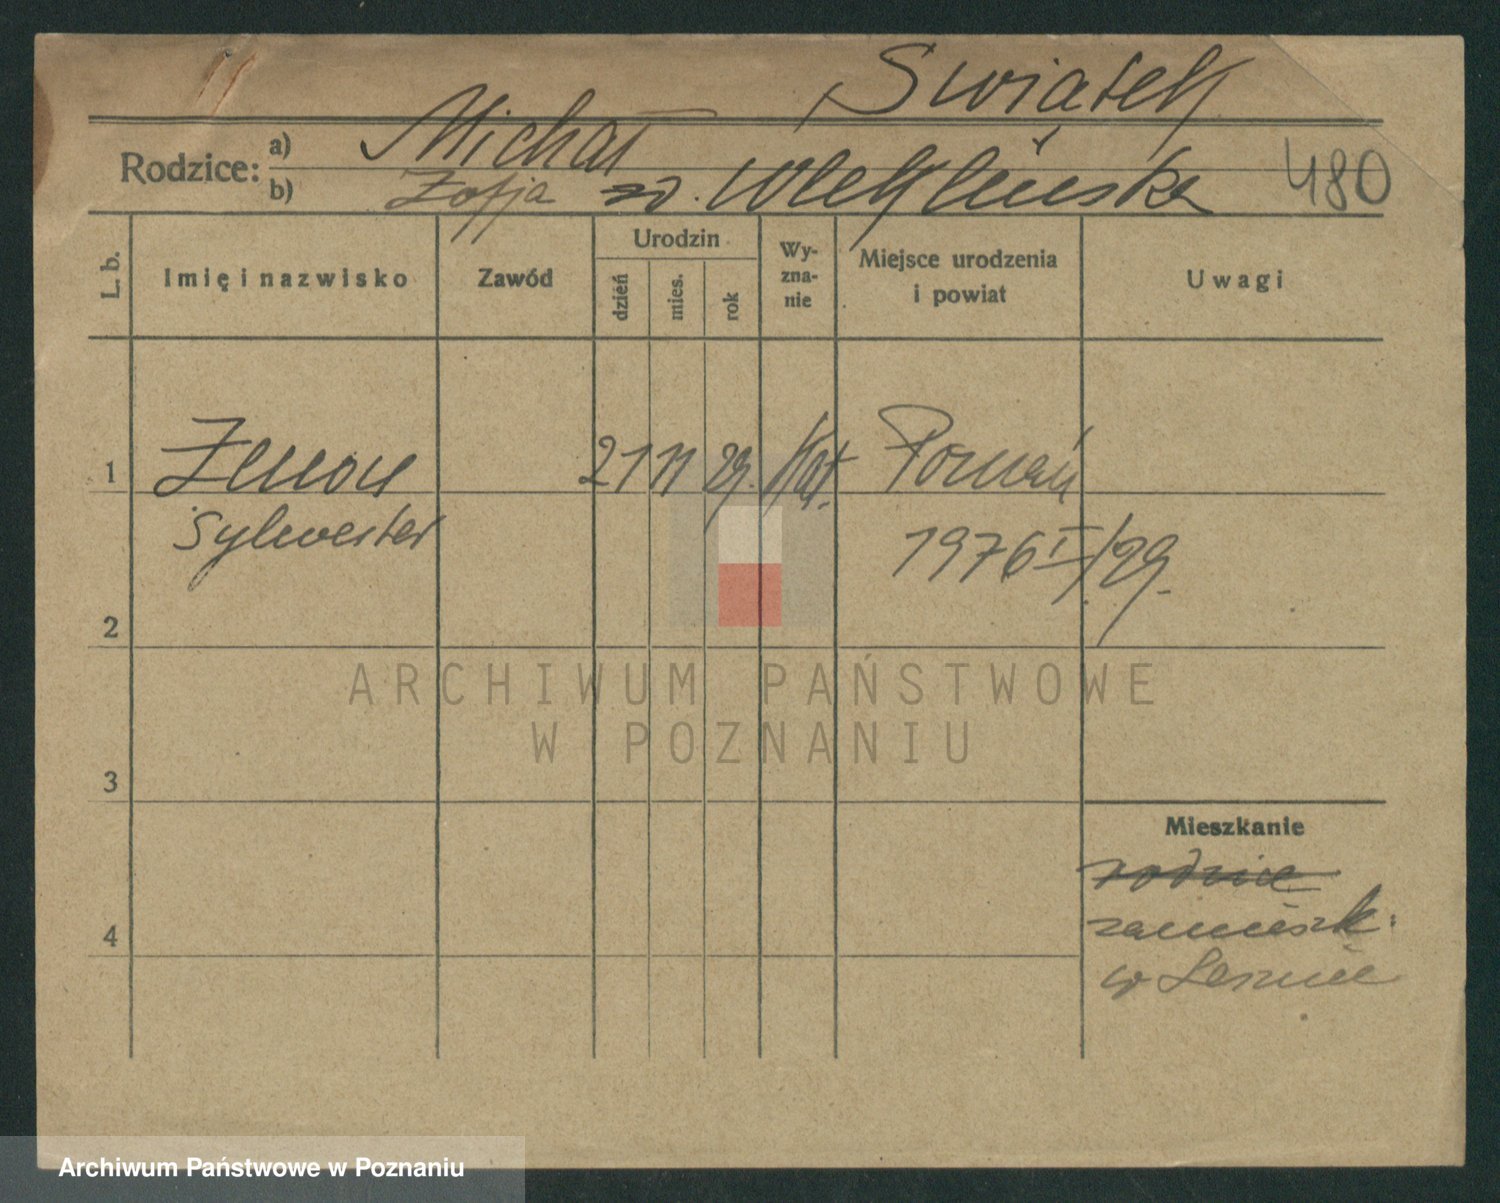 Świątek
Rodzice: a) Michał
b) Zofja zd. Wleklińska
480
L. b.
Imię i nazwisko
Zawód
Urodzin
dzień
mies.
rok
Wy-
zna-
nie
Miejsce urodzenia
i powiat
Uwagi
1 Zenon 21 11 29. kat. Poznań
Sylwester 1976 I/29.
2
3
Mieszkanie
rodzice
4 zamieszk:
w
ARCHIWUM PAŃSTWOWE
W POZNANIU
Archiwum Państwowe w Poznaniu